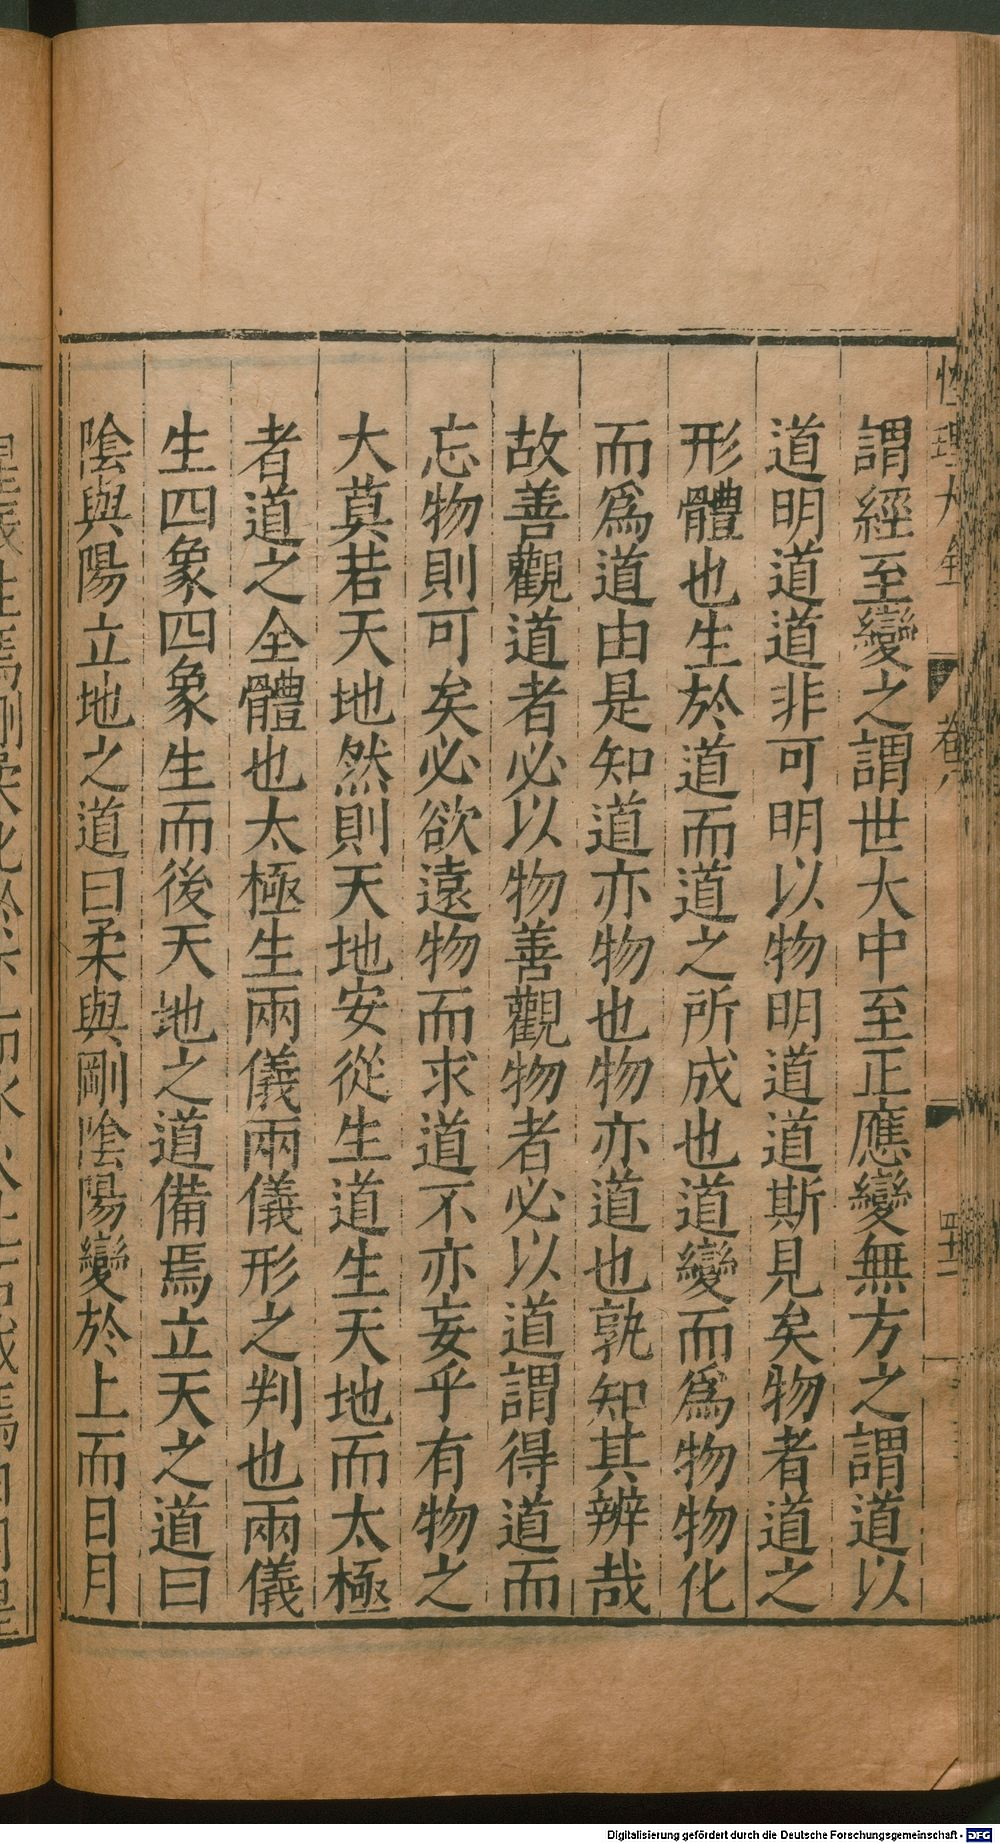 性理大全
卷八
謂經至變之謂世大中至正應變無方之謂道以
道明道道非可明以物明道道斯見矣物者道之
形體也生於道而道之所成也道變而爲物物化
而爲道由是知道亦物也物亦道也孰知其辨哉
故善觀道者必以物善觀物者必以道謂得道而
忘物則可矣必欲遠物而求道不亦妄乎有物之
大莫若天地然則天地安從生道生天地而太極
者道之全體也太極生兩儀兩儀形之判也兩儀
生四象四象生而後天地之道備焉立天之道曰
陰與陽立地之道曰柔與剛陰陽變於上而日月
Digitalisierung gefördert durch die Deutsche Forschungsgemeinschaft - DFG